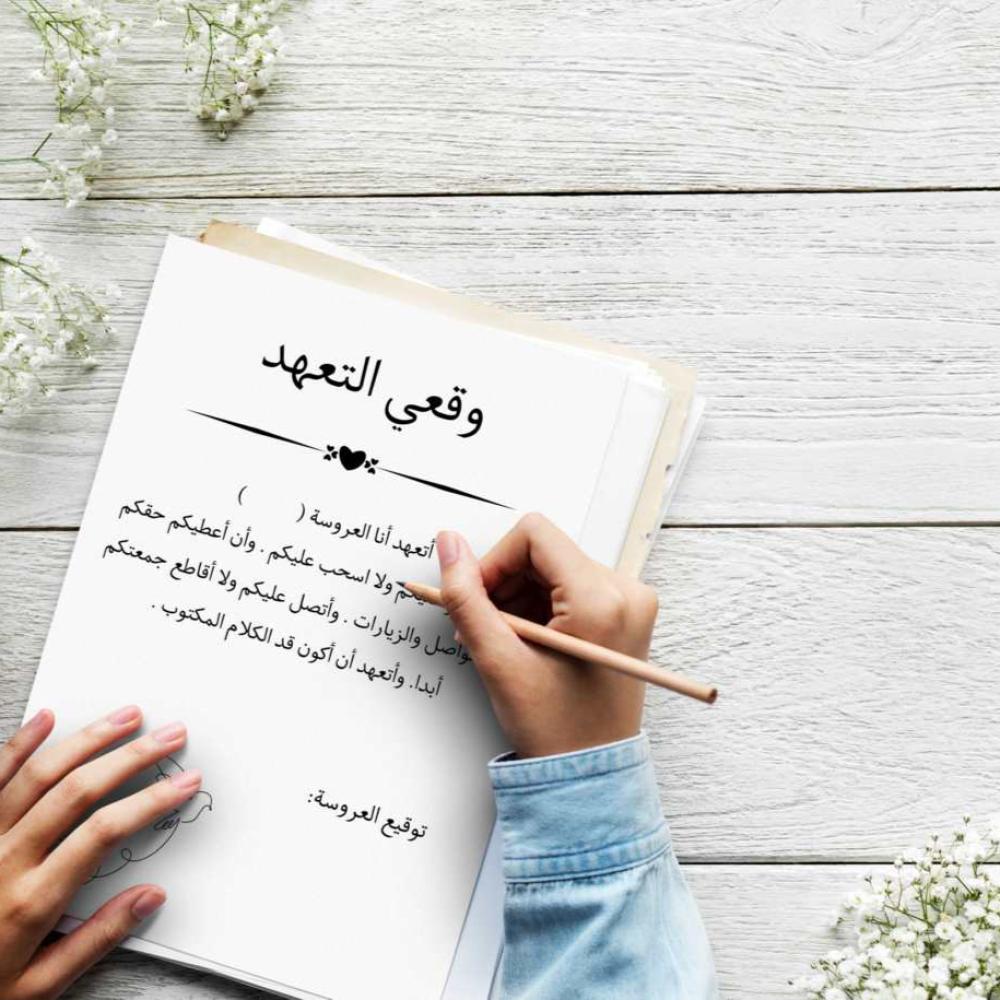 وقعي التعهد
أتعهد أنا العروسة (        )
ولا اسحب عليكم . وأن أعطيكم حقكم
والزيارات . وأتصل عليكم ولا أقاطع جمعتكم
أبدا. وأتعهد أن أكون قد الكلام المكتوب .
توقيع العروسة: